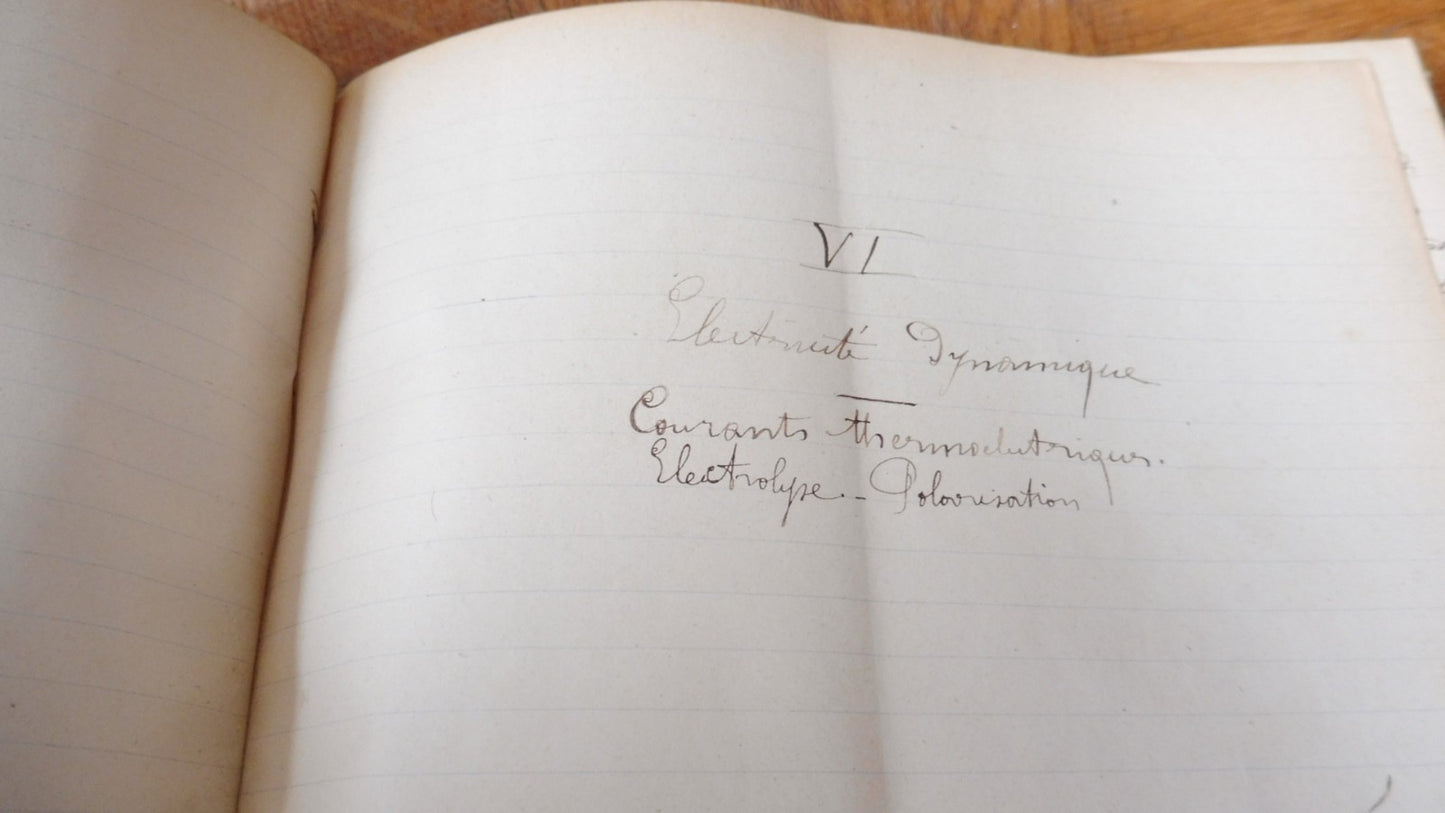 VI
Electricité Dynamique
Courants thermoelectriques.
Electrolyse. - Polarisation